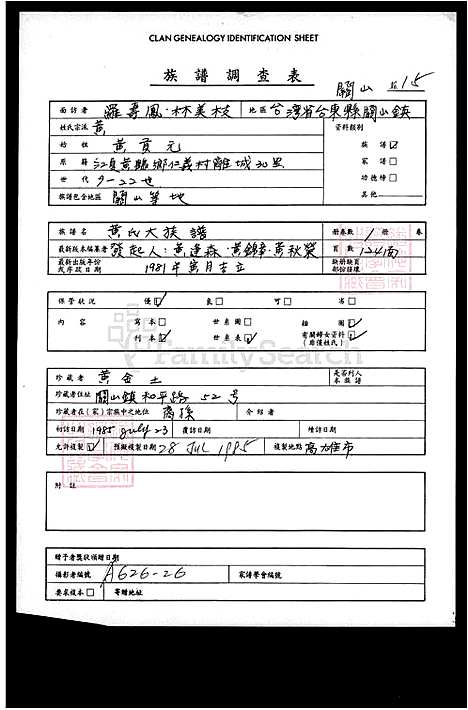 CLAN GENEALOGY IDENTIFICATION SHEET
族譜調查表
關山 15
面訪者 羅壽鳳·林美枝 地區 台灣省台東縣關山鎮
姓氏宗派 黃 資料類別
始祖 黃貢元 族譜 ☑
原籍 江夏黃縣鄉仁義村離城30里 家譜 ☐
世代 9-22世 功德榜 ☐
族譜包含地區 關山等地 其他
族譜名 黃氏大族譜 冊卷數 1 冊 卷
最新版本編纂者 發起人:黃達森·黃錦章·黃秋榮 頁數 124面
最新出版年份或序跋日期 1981年黃月吉立 缺冊缺頁部份註釋
保管狀況 優 ☑ 良 ☐ 可 ☐ 劣 ☐
內容 寫本 ☐ 世系圖 ☐ 插圖 ☑
刊本 ☑ 世系表 ☑ 有關婦女資料(非僅姓氏) ☑
FamilySearch
珍藏者 黃金土 是否列入本族譜
珍藏者住址 關山鎮和平路52号
珍藏者在(家)宗族中之地位 裔孫 介紹者
初訪日期 1985 July 23 複訪日期 續訪日期
允許複製 ☑ 預擬複製日期 28 JUL 1985 複製地點 高雄市
附註
贈予者獎狀頒贈日期
攝影者編號 A626-26 家譜學會編號
要求複本 ☐ 寄贈地址